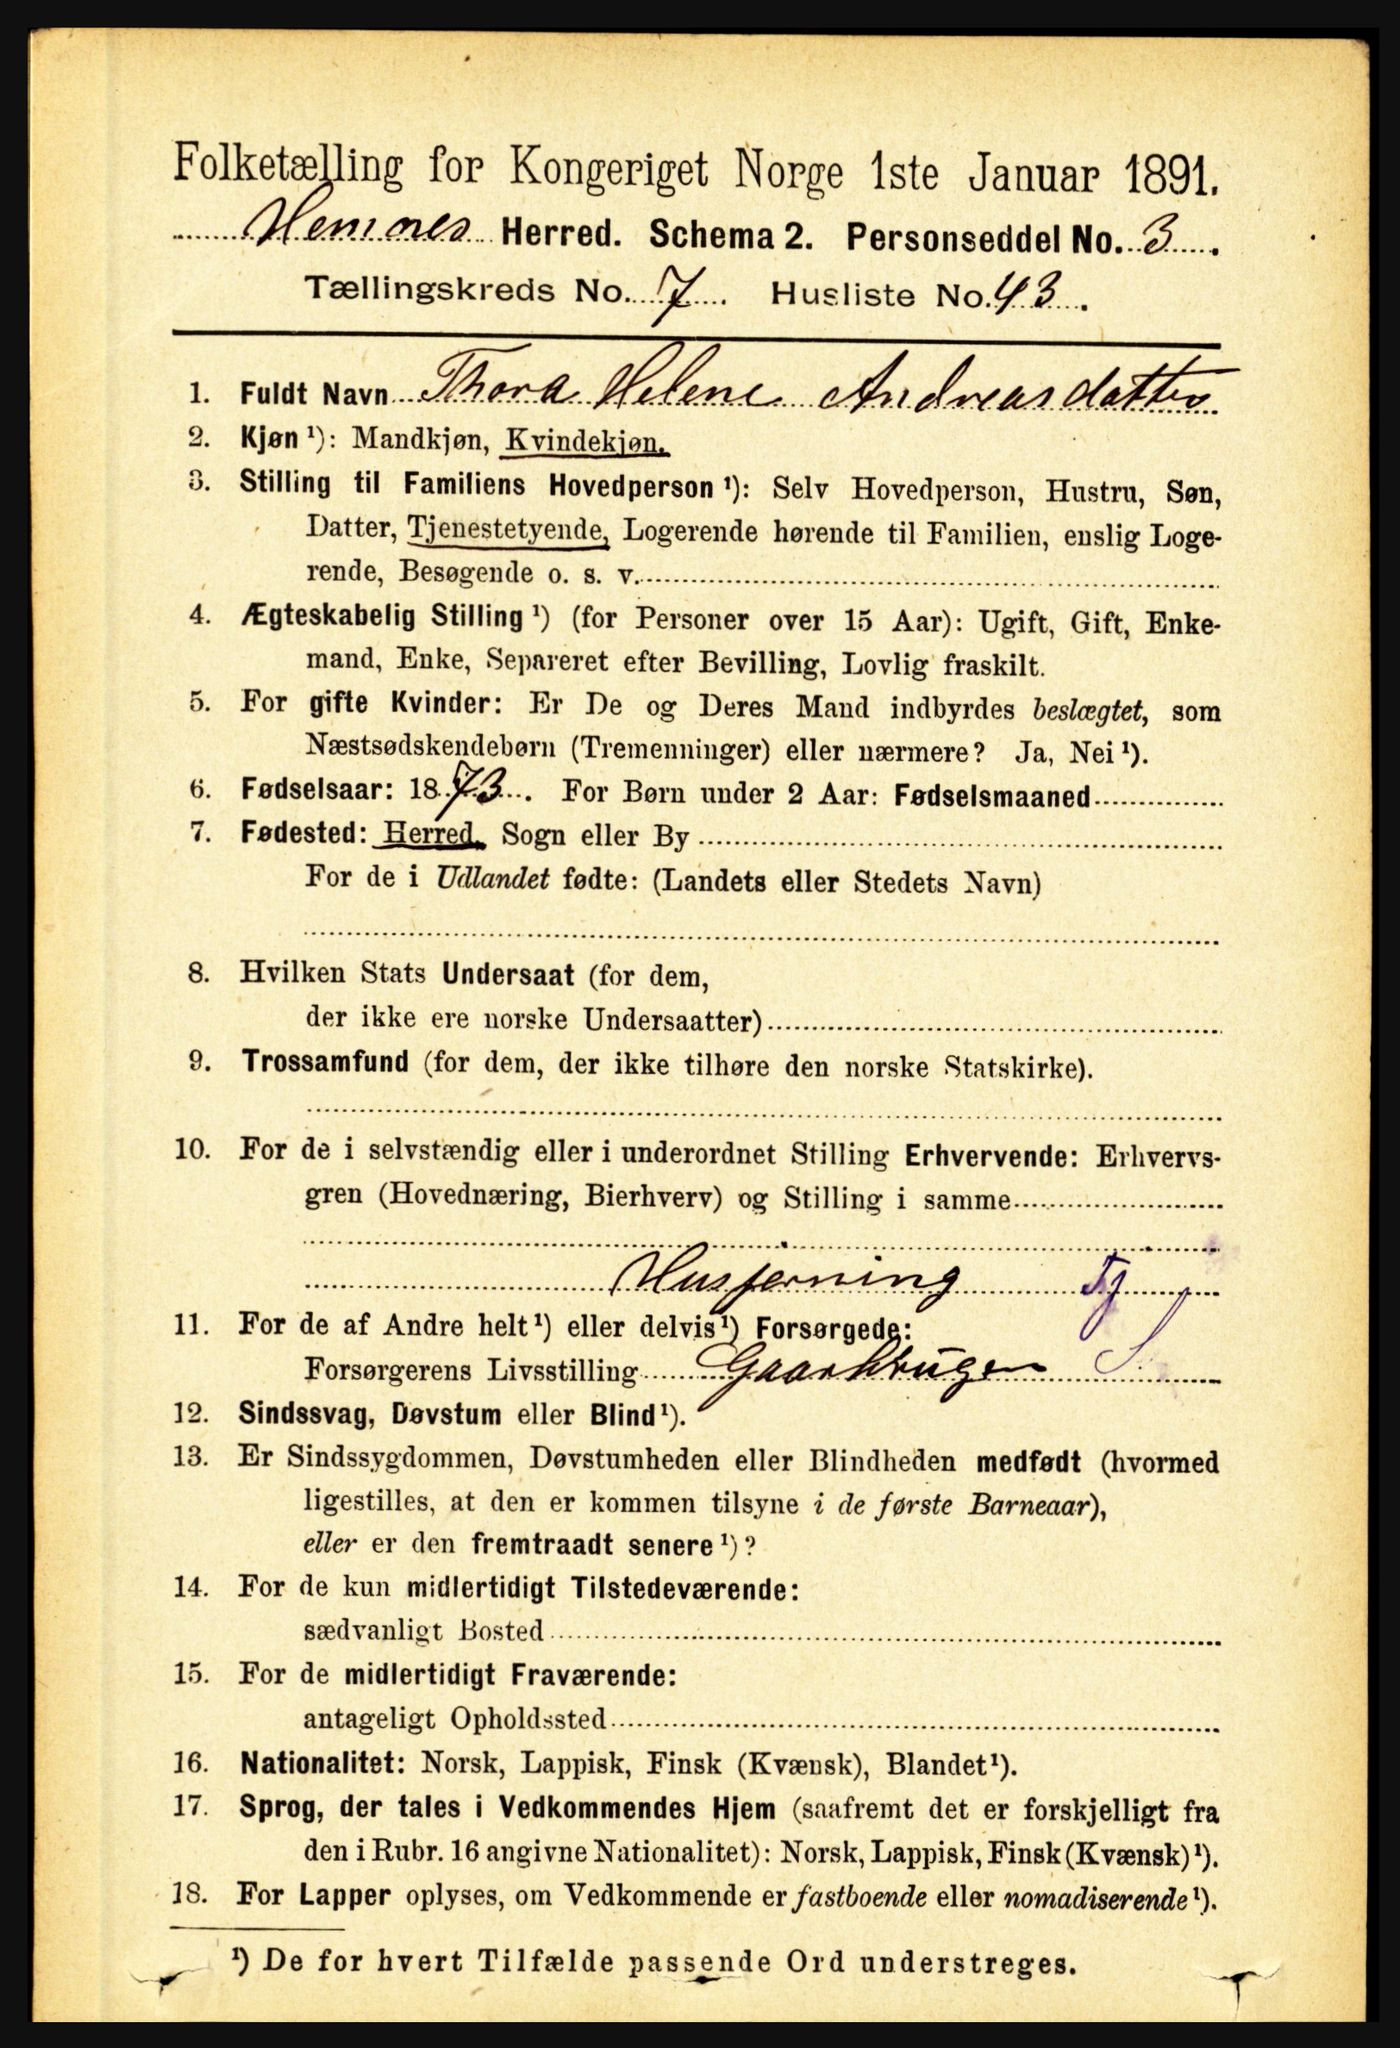 Folketælling for Kongeriget Norge 1ste Januar 1891.
Hemnes Herred. Schema 2. Personseddel No. 3
Tællingskreds No. 7 Husliste No. 43.
1. Fuldt Navn Thora Helene Andreasdatter
2. Kjøn¹): Mandkjøn, Kvindekjøn.
3. Stilling til Familiens Hovedperson¹): Selv Hovedperson, Hustru, Søn,
Datter, Tjenestetyende, Logerende hørende til Familien, enslig Loge-
rende, Besøgende o. s. v.
4. Ægteskabelig Stilling¹) (for Personer over 15 Aar): Ugift, Gift, Enke-
mand, Enke, Separeret efter Bevilling, Lovlig fraskilt.
5. For gifte Kvinder: Er De og Deres Mand indbyrdes beslægtet, som
Næstsødskendebørn (Tremenninger) eller nærmere? Ja, Nei¹).
6. Fødselsaar: 1873. For Børn under 2 Aar: Fødselsmaaned
7. Fødested: Herred, Sogn eller By
For de i Udlandet fødte: (Landets eller Stedets Navn)
8. Hvilken Stats Undersaat (for dem,
der ikke ere norske Undersaatter)
9. Trossamfund (for dem, der ikke tilhøre den norske Statskirke).
10. For de i selvstændig eller i underordnet Stilling Erhvervende: Erhvervs-
gren (Hovednæring, Bierhverv) og Stilling i samme
Husjerning Tj
11. For de af Andre helt¹) eller delvis¹) Forsørgede:
Forsørgerens Livsstilling Gaardbruger S
12. Sindssvag, Døvstum eller Blind¹).
13. Er Sindssygdommen, Døvstumheden eller Blindheden medfødt (hvormed
ligestilles, at den er kommen tilsyne i de første Barneaar),
eller er den fremtraadt senere¹)?
14. For de kun midlertidigt Tilstedeværende:
sædvanligt Bosted
15. For de midlertidigt Fraværende:
antageligt Opholdssted
16. Nationalitet: Norsk, Lappisk, Finsk (Kvænsk), Blandet¹).
17. Sprog, der tales i Vedkommendes Hjem (saafremt det er forskjelligt fra
den i Rubr. 16 angivne Nationalitet): Norsk, Lappisk, Finsk (Kvænsk)¹).
18. For Lapper oplyses, om Vedkommende er fastboende eller nomadiserende¹).
¹) De for hvert Tilfælde passende Ord understreges.